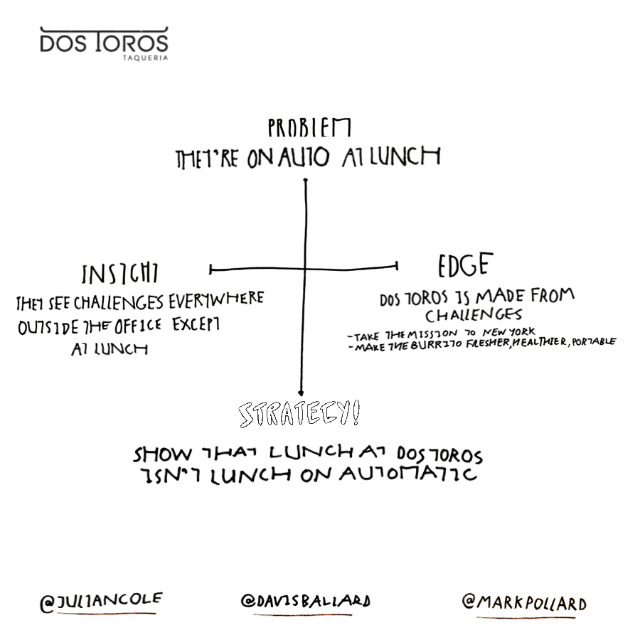 DOS TOROS
TAQUERIA
PROBLEM
THEY'RE ON AUTO AT LUNCH
INSIGHT
THEY SEE CHALLENGES EVERYWHERE
OUTSIDE THE OFFICE EXCEPT
AT LUNCH
EDGE
DOS TOROS IS MADE FROM
CHALLENGES
-TAKE THE MISSION TO NEW YORK
-MAKE THE BURRITO FRESHER, HEALTHIER, PORTABLE
STRATEGY!
SHOW THAT LUNCH AT DOS TOROS
ISN'T LUNCH ON AUTOMATIC
@JULIANCOLE
@DAVISBALLARD
@MARKPOLLARD